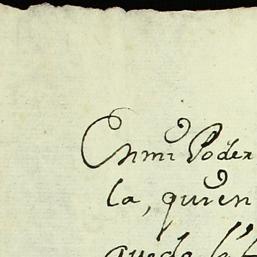 En mi Poder
la, quien
queda